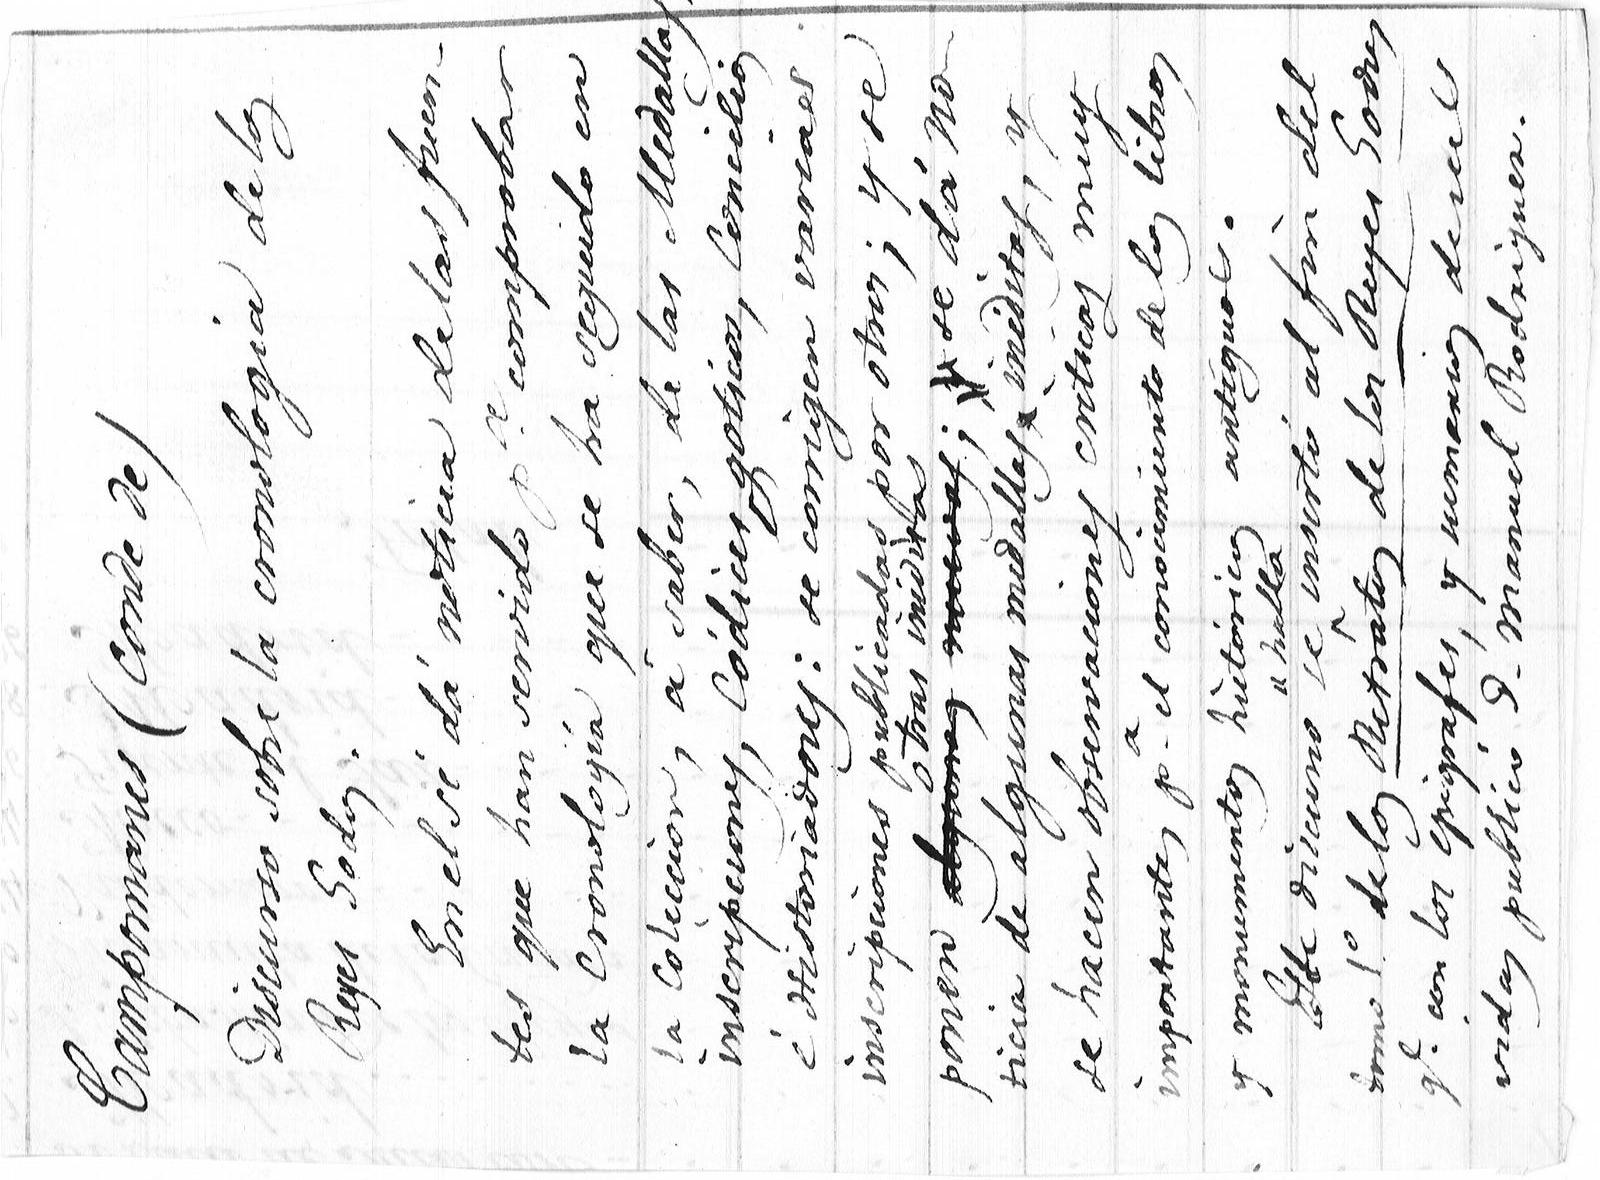 Campomanes (Conde de)
Discurso sobre la cronologia de los
Reyes Godos.
En el se dá noticia de las fuen-
tes que han servido pª comprobar
la Cronologia que se ha seguido en
la coleccion, á saber, de las Medallas,
inscripciones, Códices goticos, Concilios
é Historiadores: se corrigen varias
inscripciones publicadas por otros; y se
otras inéditas
ponen algunas nuevas; y se dá no-
ticia de algunas medallas inéditas, y
se hacen observaciones criticas muy
importantes pª el conocimiento de los libros
y monumentos históricos antiguos.
"halla
Este discurso se insertó al fin del
tomo 1º de los Retratos de los Reyes Godos
qe. con los epigrafes, y sumarios de sus
vidas publicó D. Manuel Rodriguez.